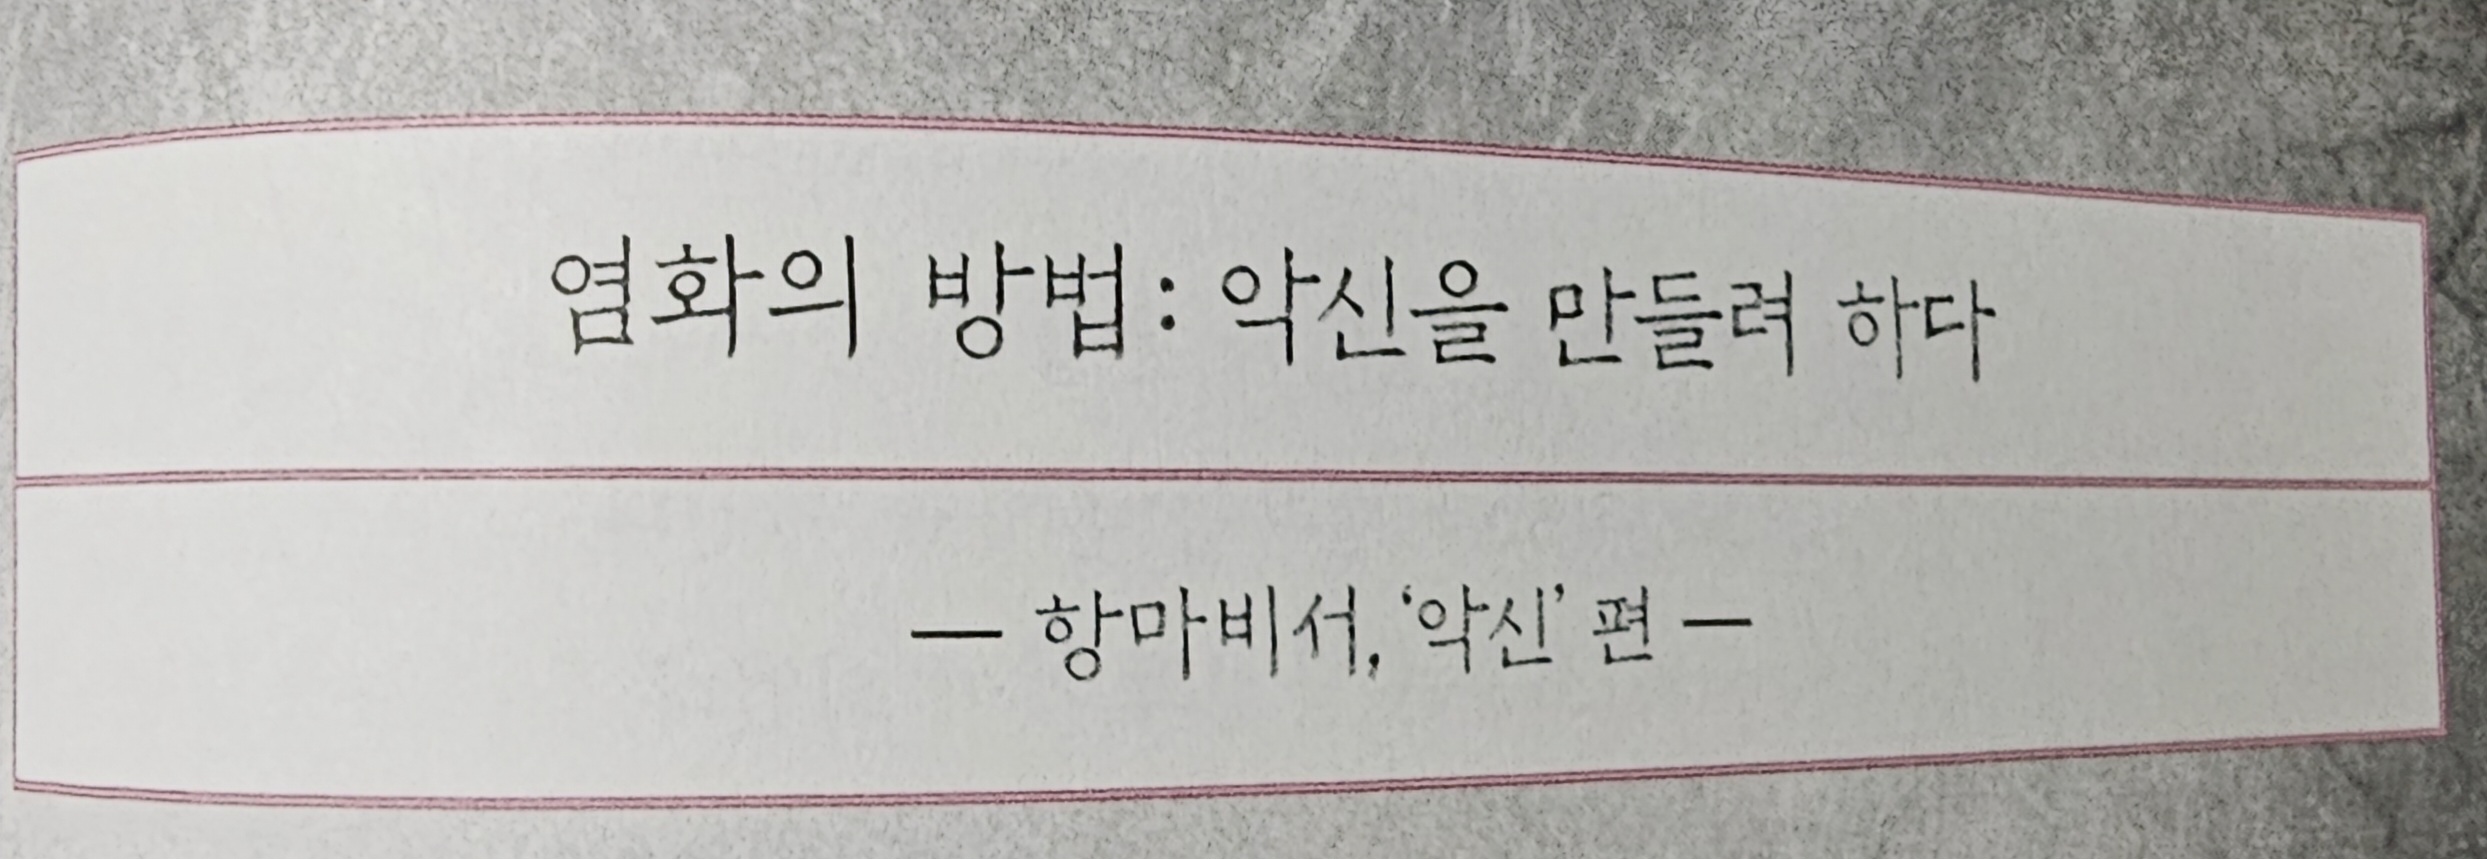 염화의 방법: 악신을 만들려 하다
— 항마비서, ‘악신’ 편 —